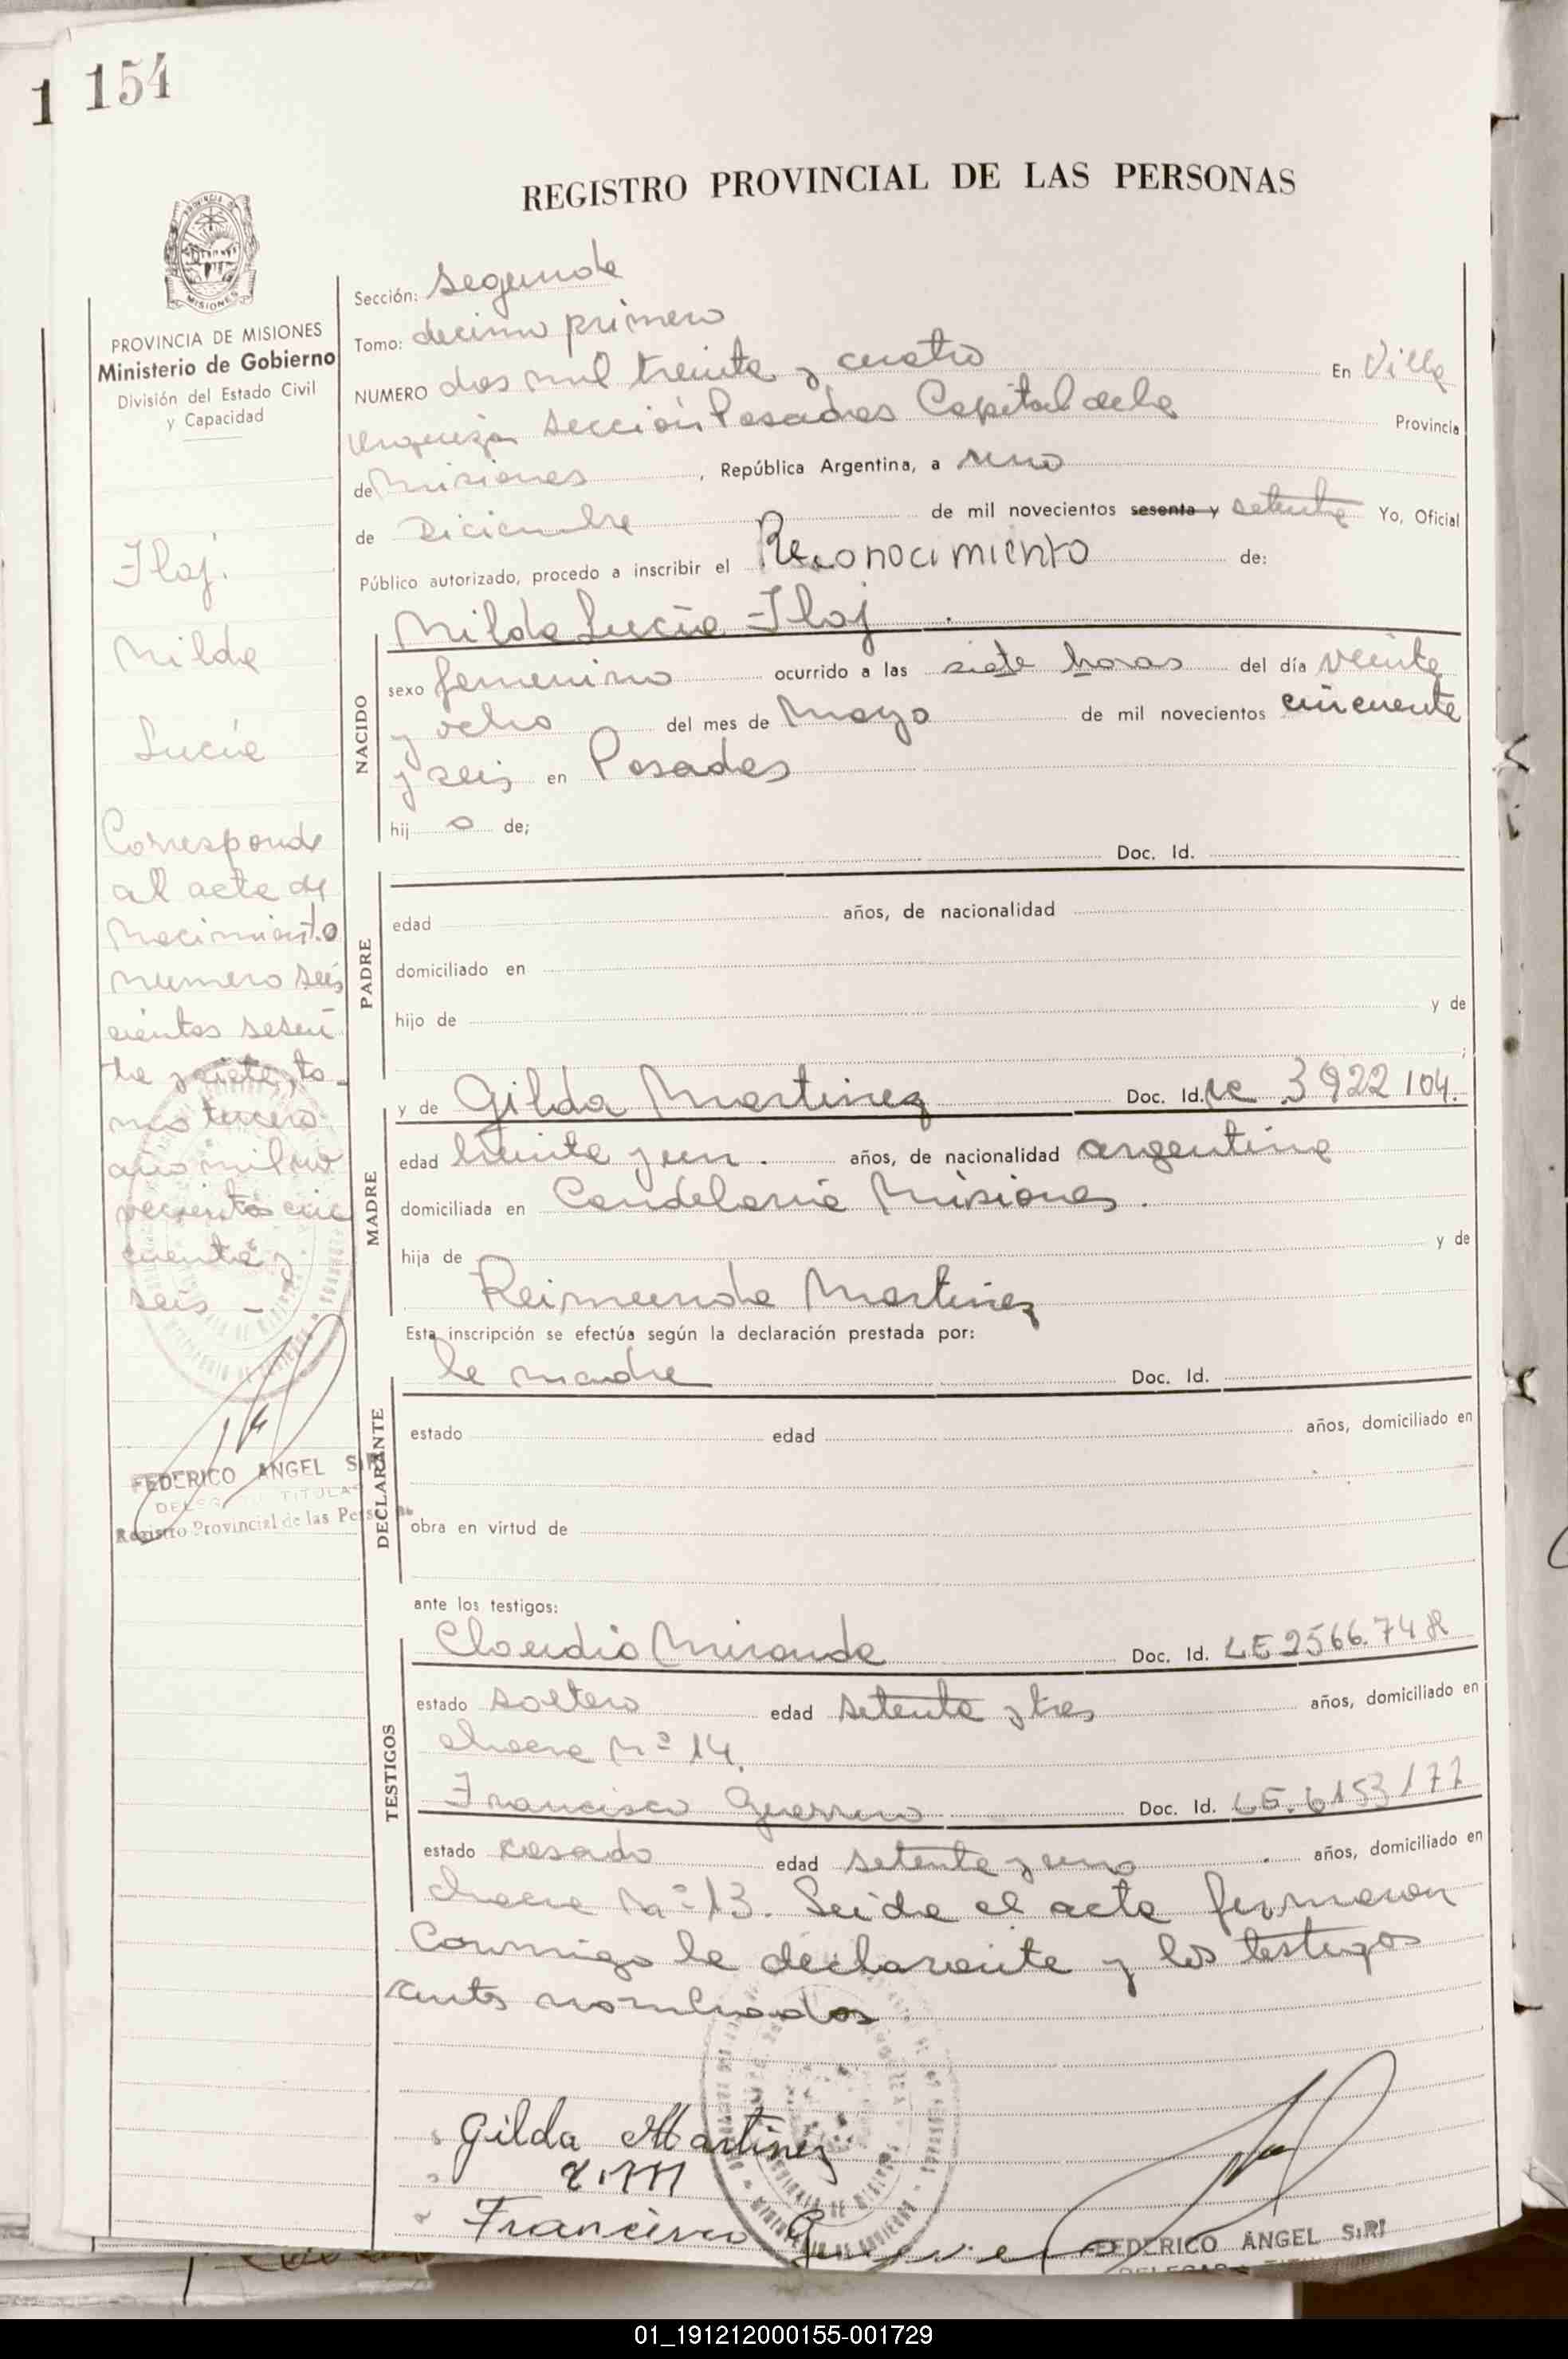 1 154
REGISTRO PROVINCIAL DE LAS PERSONAS
MISIONES
PROVINCIA DE MISIONES
Ministerio de Gobierno
División del Estado Civil
y Capacidad
Ilaj.
Nilda
Lucía
Corresponde
al acta de
Nacimiento
numero seis
cientos sesen
ta y siete, to-
mo tercero
año mil no
vecientos cin
cuenta y
seis -
FEDERICO ANGEL SIRI
DELEGADO TITULAR
Registro Provincial de las Personas
Sección: Segunda
Tomo: decimo primero
NUMERO dos mil treinta y cuatro En Villa
Urquiza Sección Posadas Capital de la Provincia
de Misiones, República Argentina, a uno
de Diciembre de mil novecientos sesenta y setenta Yo, Oficial
Público autorizado, procedo a inscribir el Reconocimiento de:
NACIDO
Nilda Lucía Ilaj
sexo femenino ocurrido a las siete horas del día veinte
y ocho del mes de Mayo de mil novecientos cincuenta
y seis en Posadas
hij o de;
PADRE
Doc. Id.
edad años, de nacionalidad
domiciliado en
hijo de y de
;
MADRE
y de Gilda Martinez Doc. Id. LC 3922104.
edad treinta y un. años, de nacionalidad argentina
domiciliada en Candelaria Misiones.
hija de y de
Reimunda Martinez
Esta inscripción se efectúa según la declaración prestada por:
DECLARANTE
la madre Doc. Id.
estado edad años, domiciliado en
obra en virtud de
ante los testigos:
TESTIGOS
Claudio Miranda Doc. Id. LE 2566.748
estado soltero edad setenta y tres años, domiciliado en
chacra Nº 14.
Francisco Guerrero Doc. Id. LE. 6153177
estado casado edad setenta y uno años, domiciliado en
chacra Nº 13. Leida el acta firmaron
conmigo la declarante y los testigos
antes nombrados
Gilda Martinez
Francisco
FEDERICO ANGEL SIRI
01_191212000155-001729